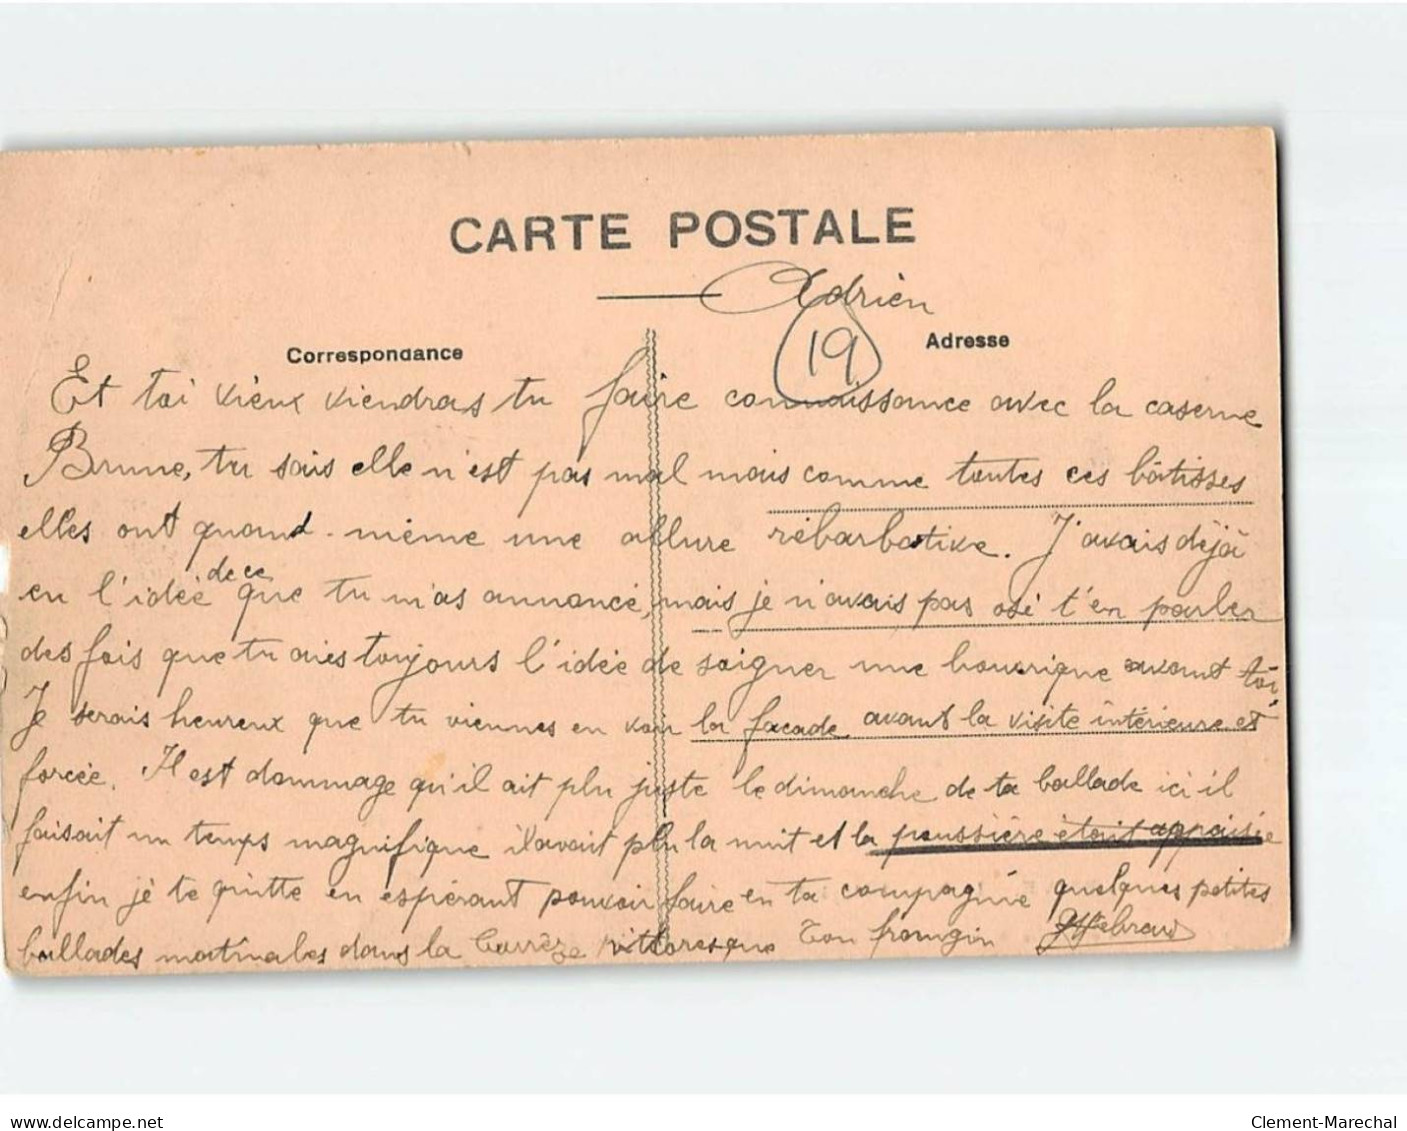 CARTE POSTALE
Adrien
19
Correspondance
Adresse
Et toi vieux viendras tu faire connaissance avec la caserne
Brune, tu sais elle n'est pas mal mais comme toutes ces bâtisses
elles ont quand-même une allure rébarbative. J'avais déjà
eu l'idée de ce que tu m'as annoncé, mais je n'avais pas osé t'en parler
des fois que tu aies toujours l'idée de soigner une bourrique avant toi,
Je serais heureux que tu viennes en voir la façade avant la visite intérieure et
forcée. Il est dommage qu'il ait plu juste le dimanche de ta ballade ici il
faisait un temps magnifique il avait plu la nuit et la poussière était appaisée
enfin je te quitte en espérant pouvoir faire en ta compagnie quelques petites
ballades matinales dans la Corrèze pittoresque Ton frangin
delcampe.net
Clement-Marechal